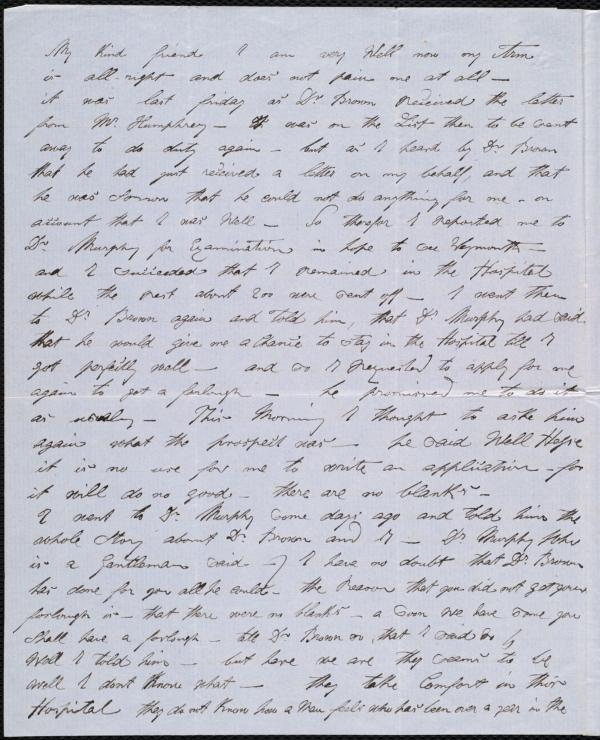 My Kind friend I am very Well now my Arm
is all-right and does not pain me at all —
it was last friday as Dr. Brown received the letter
from Mr. Humphrey — It was on the List then to be sent
away to do duty again — but as I heard by Dr. Brown
that he had just received a letter on my behalf and that
he was sorrow that he could not do anything for me - on
account that I was Well — So therefor I reported me to
Dr. Murphy for Examination in hope to see Weymouth —
ad I succeeded that I remained in the Hospital
while the rest about 200 were sent off — I went then
to Dr. Brown again and told him, that Dr. Murphy had said
that he would give me a chance to stay in the Hospital till I
got perfectly well — and so I requested to apply for me
again to get a furlough — he promissed me to do it
as — This Morning I thought to aske him
again what the prospect was — he said Well
it is no use for me to write an application - for
it will do no good - there are no blank's —
I went to Dr. Murphy some days ago and told him the
whole Story about Dr. Brown and I — Dr Murphy who
is a Gentleman said — I have no doubt that Dr. Brown
has done for you all he could - the Reason that you did not got your
forlough is - that there were no blanks - a soon we have some you
Shall have a forlough - tell Dr Brown so, that I said so
Well I told him — but here we are they seems to be
well I dont Know what — they take Comfort in this
Hospital they do not Know how a Man feels who has been over a year in the